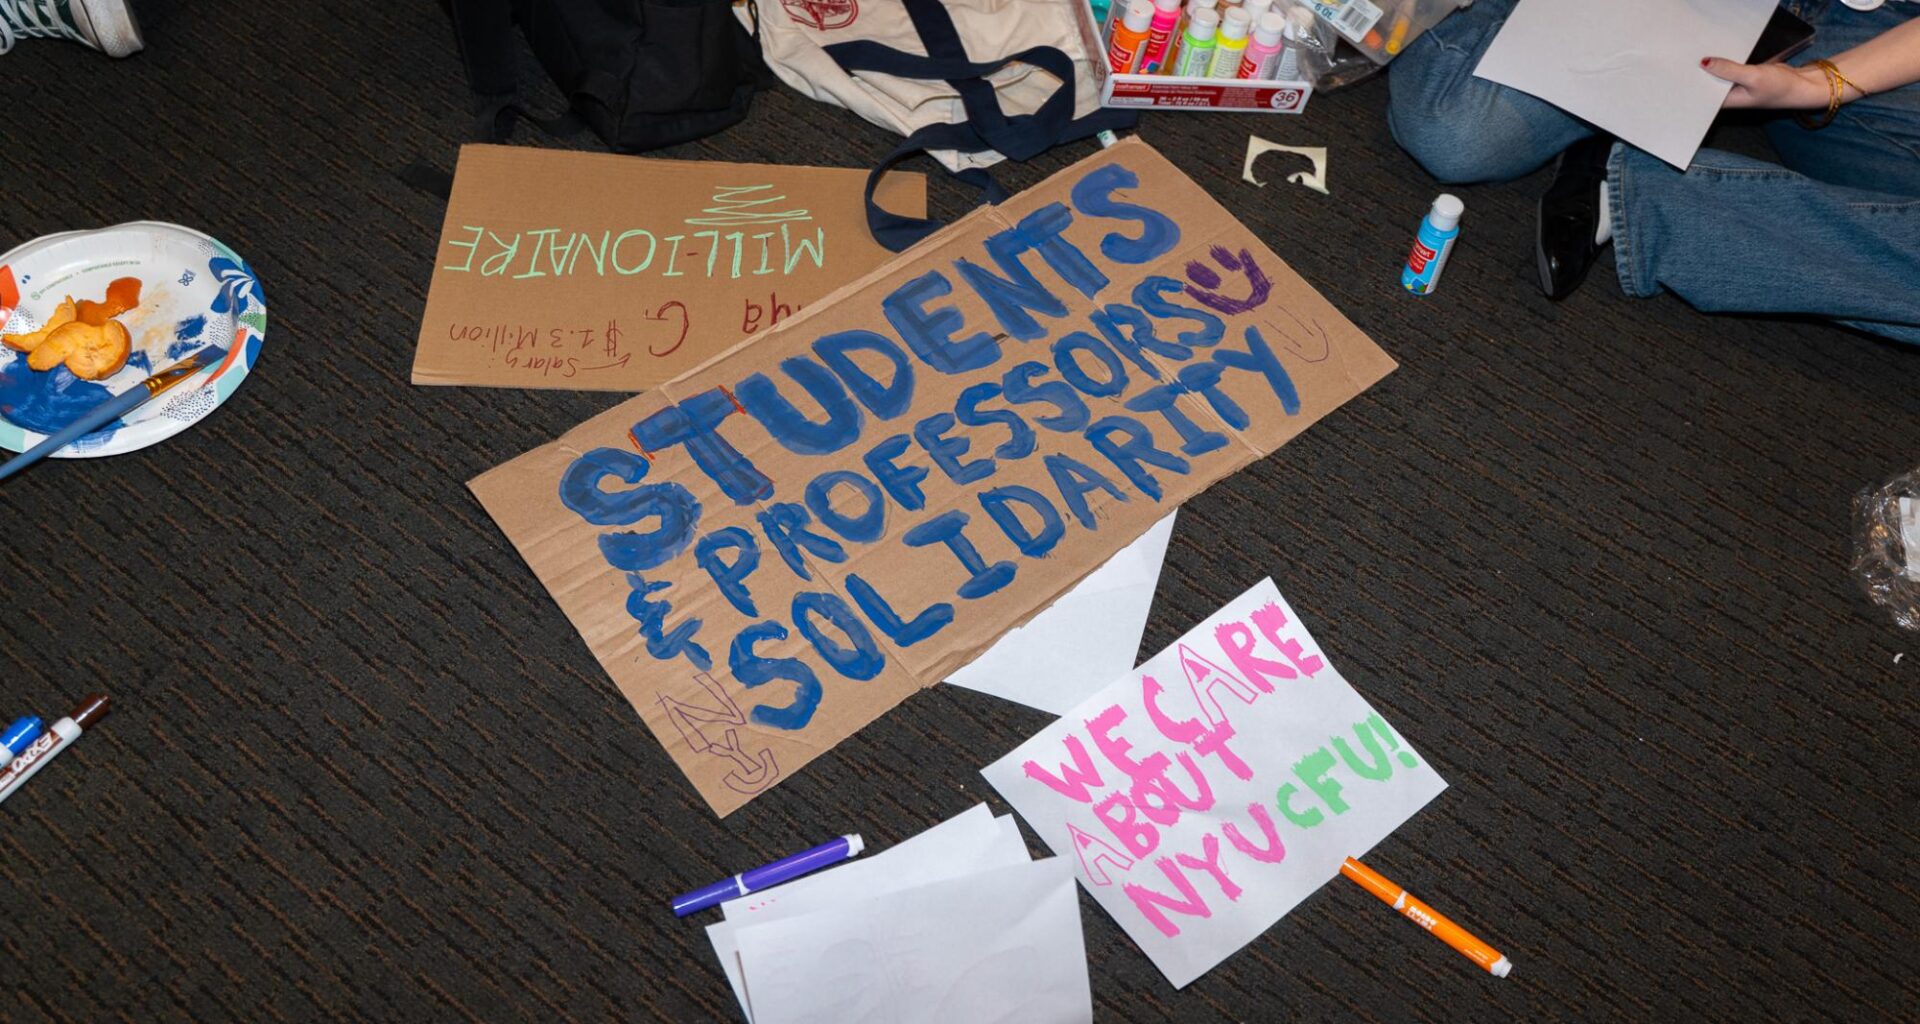 MILLIONAIRE
G.
← Salary:
$1.3 Million
STUDENTS
& PROFESSORS
SOLIDARITY
NYU
WE CARE
ABOUT
NYU CFU!
36
EXPO